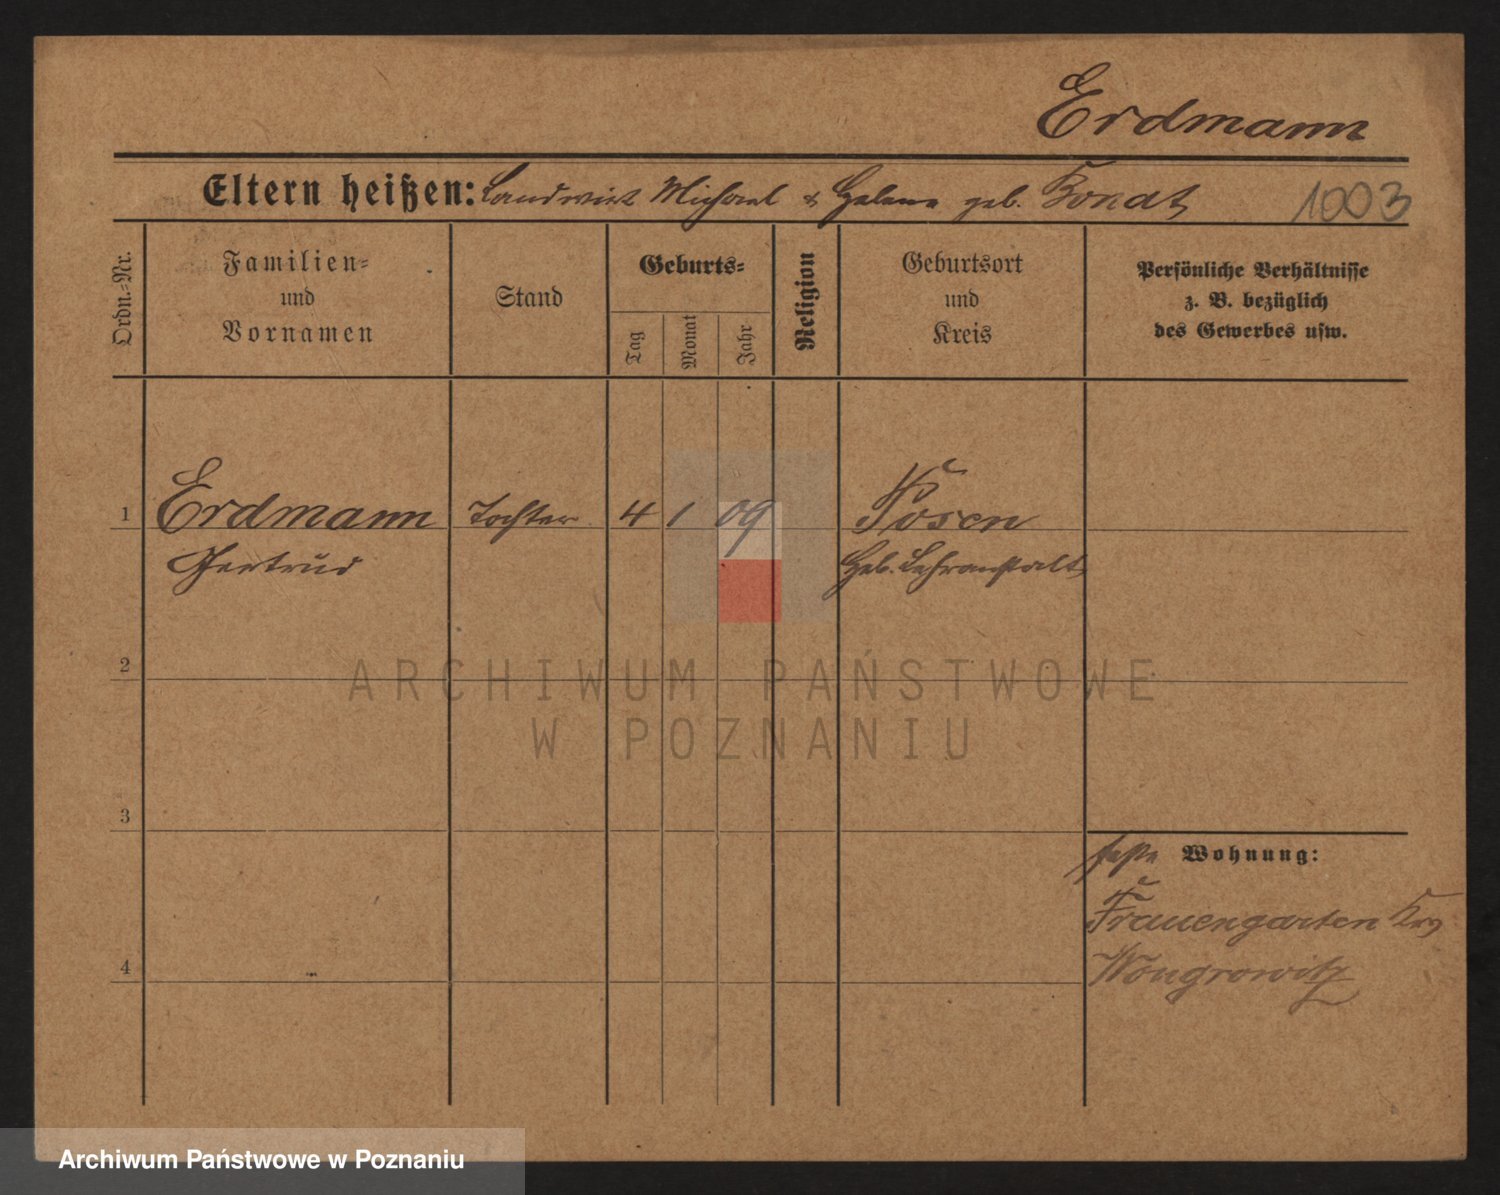 Erdmann
Eltern heißen: Landwirt Michael & Helene geb. Konat
1003
Ordn.-Nr.
Familien- und Vornamen
Stand
Geburts-
Tag
Monat
Jahr
Religion
Geburtsort und Kreis
Persönliche Verhältnisse
z. B. bezüglich
des Gewerbes usw.
1 Erdmann Tochter 4 1 09 Posen
Gertrud Heb. Lehranstalt
2
ARCHIWUM PAŃSTWOWE
W POZNANIU
3
feste Wohnung:
Frauengarten Krs
4 Wongrowitz
Archiwum Państwowe w Poznaniu